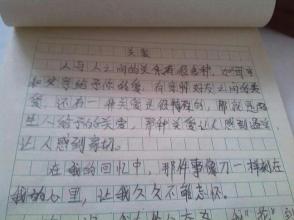 关爱
人与人之间的关爱有很多种，如母
和父亲给予你的爱，有亲朋好友之间的关
爱，还有一种关爱是很特别的，那就是陌
生人给予的关爱，那种关爱让人感到温暖，
让人感到亲切。
在我的回忆中，那件事像刀一样刻在
我的心里，让我久久不能忘怀。